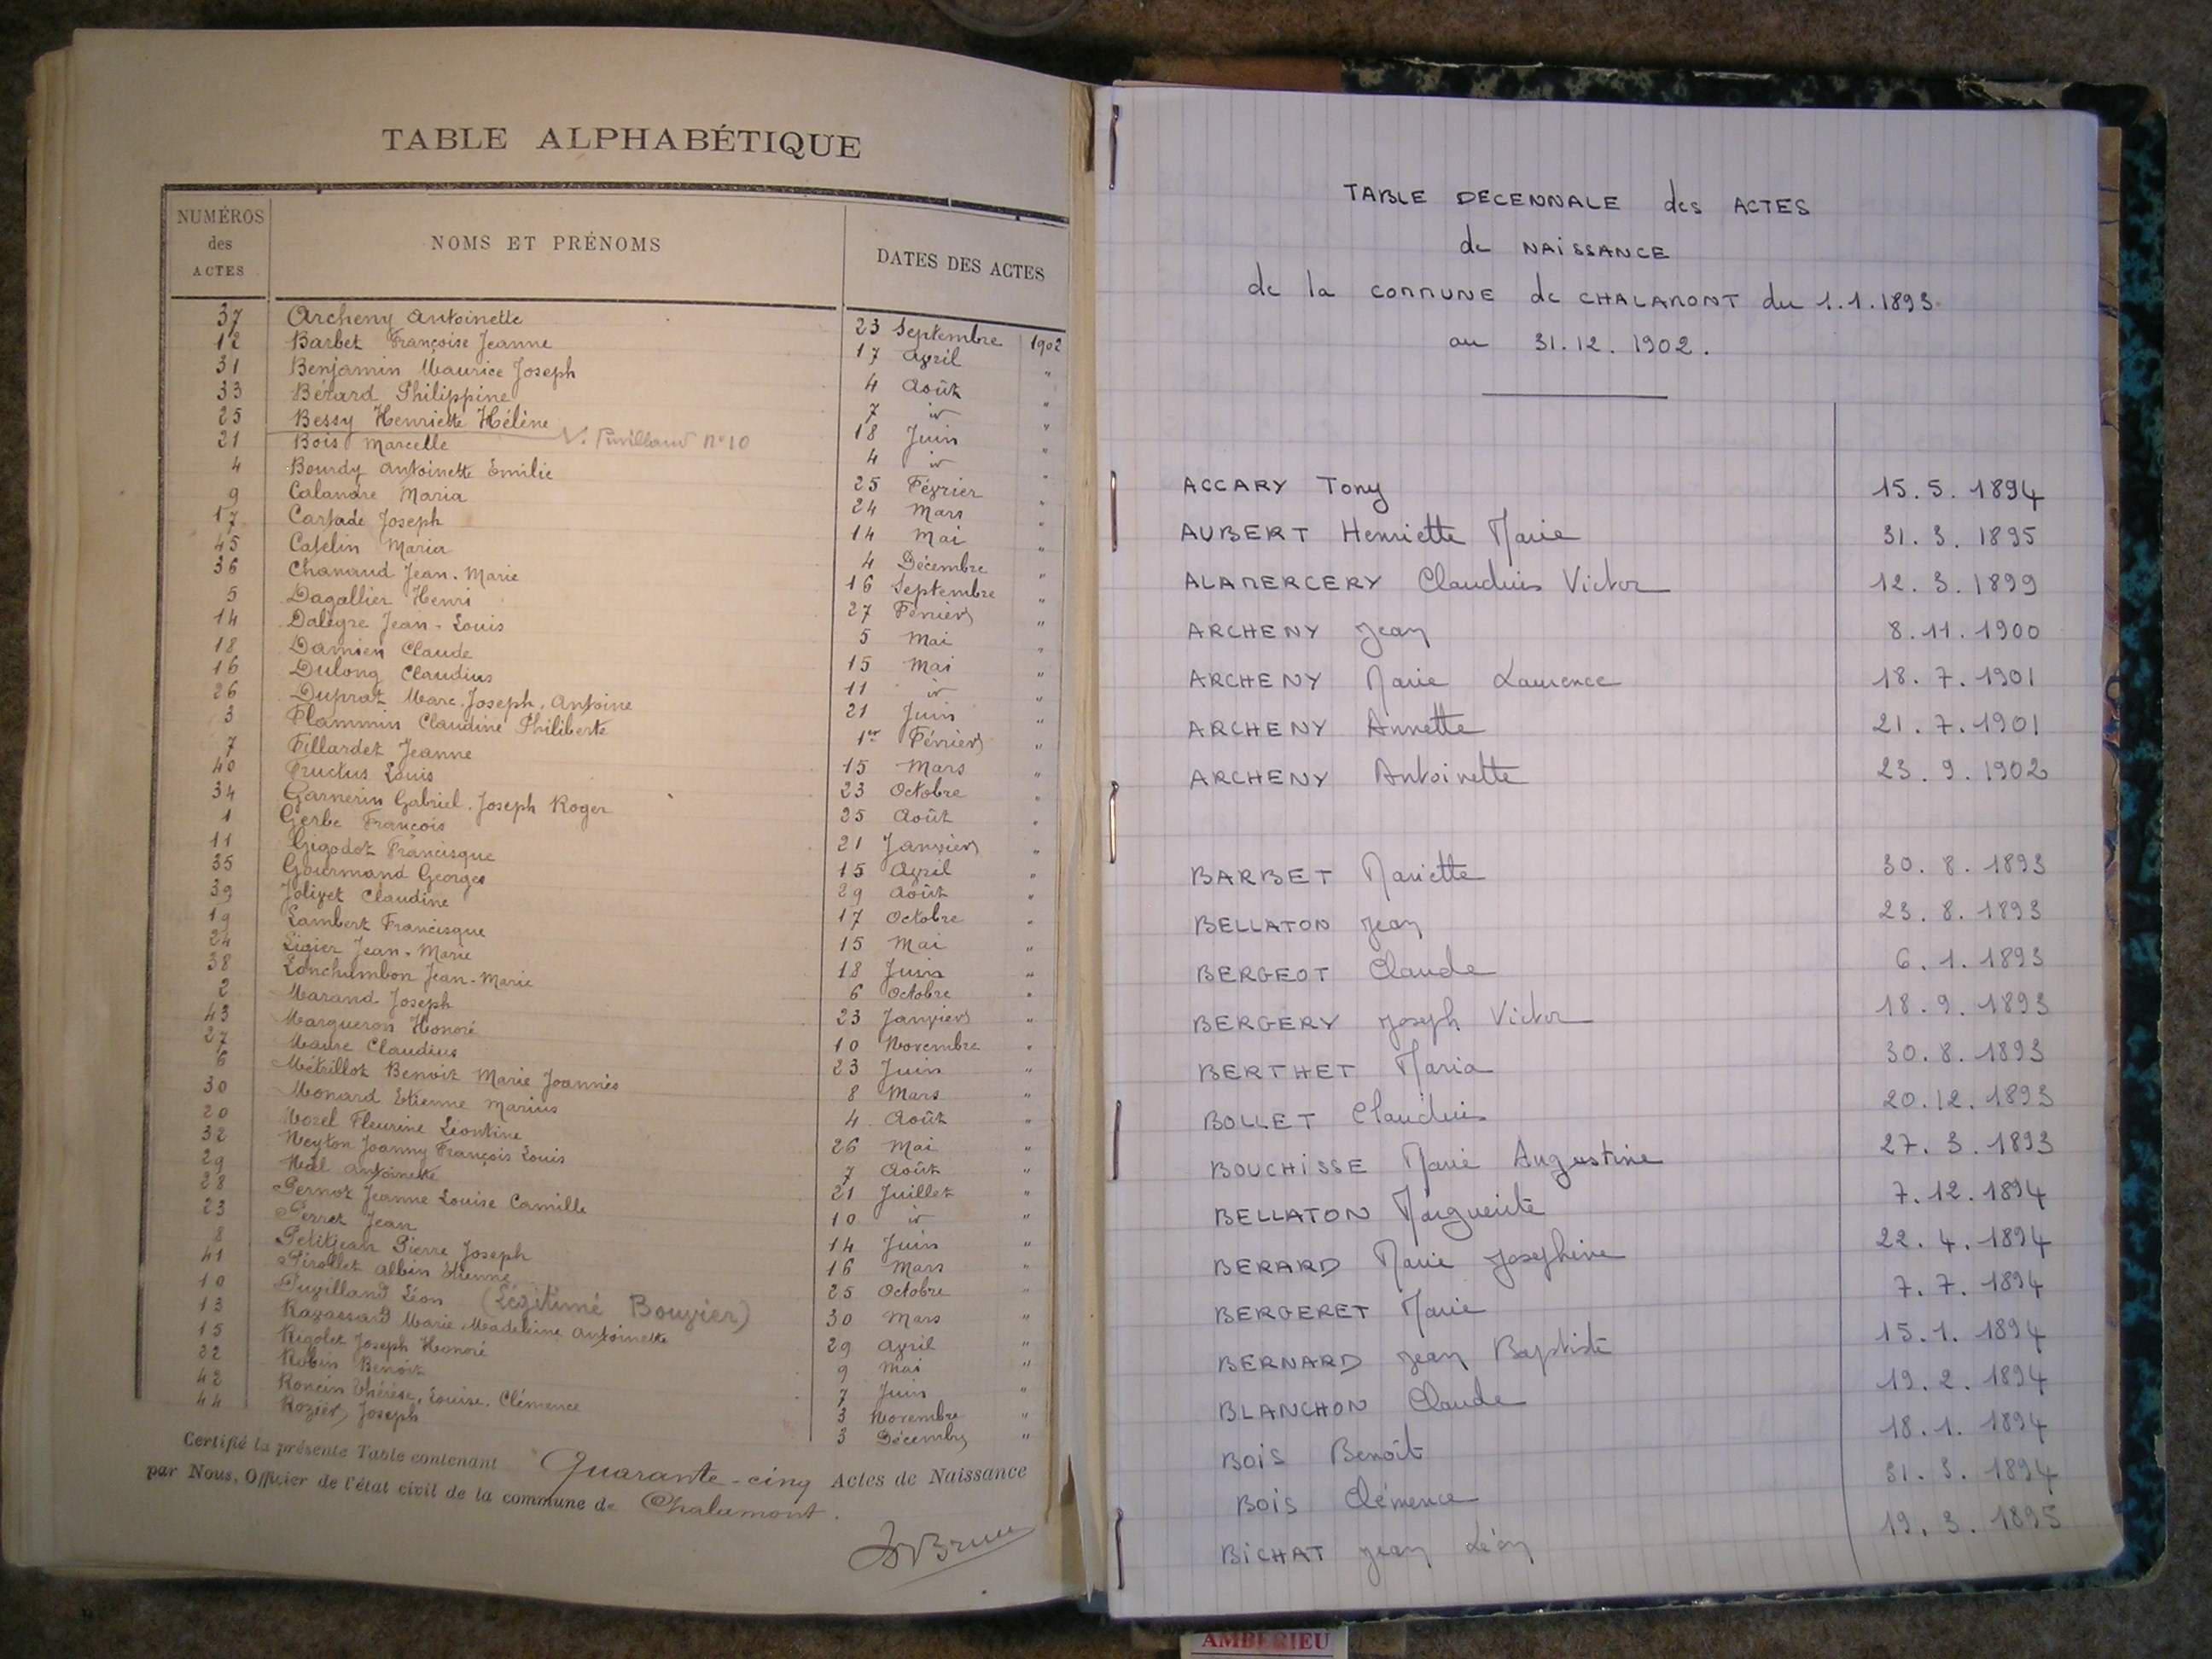 TABLE ALPHABÉTIQUE
NUMÉROS des ACTES NOMS ET PRÉNOMS DATES DES ACTES
37 Archeny Antoinette 23 Septembre 1902
12 Barbet Françoise Jeanne 17 Avril "
31 Benjamin Maurice Joseph 4 Août "
33 Bérard Philippine 7 id "
25 Bessy Henriette Hélène 18 Juin "
21 Bois Marcelle V. Puvilland n° 10 4 id "
4 Bourdy Antoinette Emilie 25 Février "
9 Calandre Maria 24 Mars "
17 Carjade Joseph 14 Mai "
45 Catelin Maria 4 Décembre "
36 Chanaud Jean-Marie 16 Septembre "
5 Dagallier Henri 27 Février "
14 Dalègre Jean-Louis 5 Mai "
18 Damien Claude 15 Mai "
16 Dulong Claudius 11 id "
26 Duprat Marc, Joseph, Antoine 21 Juin "
3 Flammin Claudine Philiberte 1er Février "
7 Fillardet Jeanne 15 Mars "
40 Fructus Louis 23 Octobre "
34 Garnerin Gabriel, Joseph Roger 25 Août "
1 Gerbe François 21 Janvier "
11 Gigodot Francisque 15 Avril "
35 Gourmand Georges 29 Août "
39 Jolivet Claudine 17 Octobre "
19 Lambert Francisque 15 Mai "
24 Ligier Jean-Marie 18 Juin "
38 Lonchambon Jean-Marie 6 Octobre "
2 Marand Joseph 23 Janvier "
43 Margueron Honoré 10 Novembre "
27 Maure Claudius 23 Juin "
6 Métrillot Benoit Marie Joannès 8 Mars "
30 Monard Etienne Marius 4 Août "
20 Morel Fleurine Léontine 26 Mai "
32 Neyton Joanny François Louis 7 Août "
29 Antoinette 21 Juillet "
28 Pernot Jeanne Louise Camille 10 id "
23 Perret Jean 14 Juin "
8 Petitjean Pierre Joseph 16 Mars "
41 Pirollet Albin Etienne 25 Octobre "
10 Puvilland Léon (Légitimé Bouvier) 30 Mars "
13 Ravassard Marie Madeleine Antoinette 29 Avril "
15 Rigolet Joseph Honoré 9 Mai "
22 Robin Benoit 7 Juin "
42 Roncin Thérèse, Louise, Clémence 3 Novembre "
44 Rozier, Joseph 3 Décembre "
Certifié la présente Table contenant Quarante-cinq Actes de Naissance
par Nous, Officier de l'état civil de la commune de Chalamont.
TABLE DECENNALE des ACTES
de NAISSANCE
de la COMMUNE de CHALAMONT du 1.1.1893
au 31.12.1902.
ACCARY Tony 15.5.1894
AUBERT Henriette Marie 31.3.1895
ALAMERCERY Claudius Victor 12.3.1899
ARCHENY Jean 8.11.1900
ARCHENY Marie Laurence 18.7.1901
ARCHENY Annette 21.7.1901
ARCHENY Antoinette 23.9.1902
BARBET Mariette 30.8.1893
BELLATON Jean 23.8.1893
BERGEOT Claude 6.1.1893
BERGERY Joseph Victor 18.9.1893
BERTHET Maria 30.8.1893
BOLLET Claudius 20.12.1893
BOUCHISSE Marie Augustine 27.3.1893
BELLATON Marguerite 7.12.1894
BERARD Marie Josephine 22.4.1894
BERGERET Marie 7.7.1894
BERNARD Jean Baptiste 15.1.1894
BLANCHON Claude 19.2.1894
BOIS Benoît 18.1.1894
BOIS Clémence 31.3.1894
BICHAT Jean Léon 19.3.1895
AMBERIEU